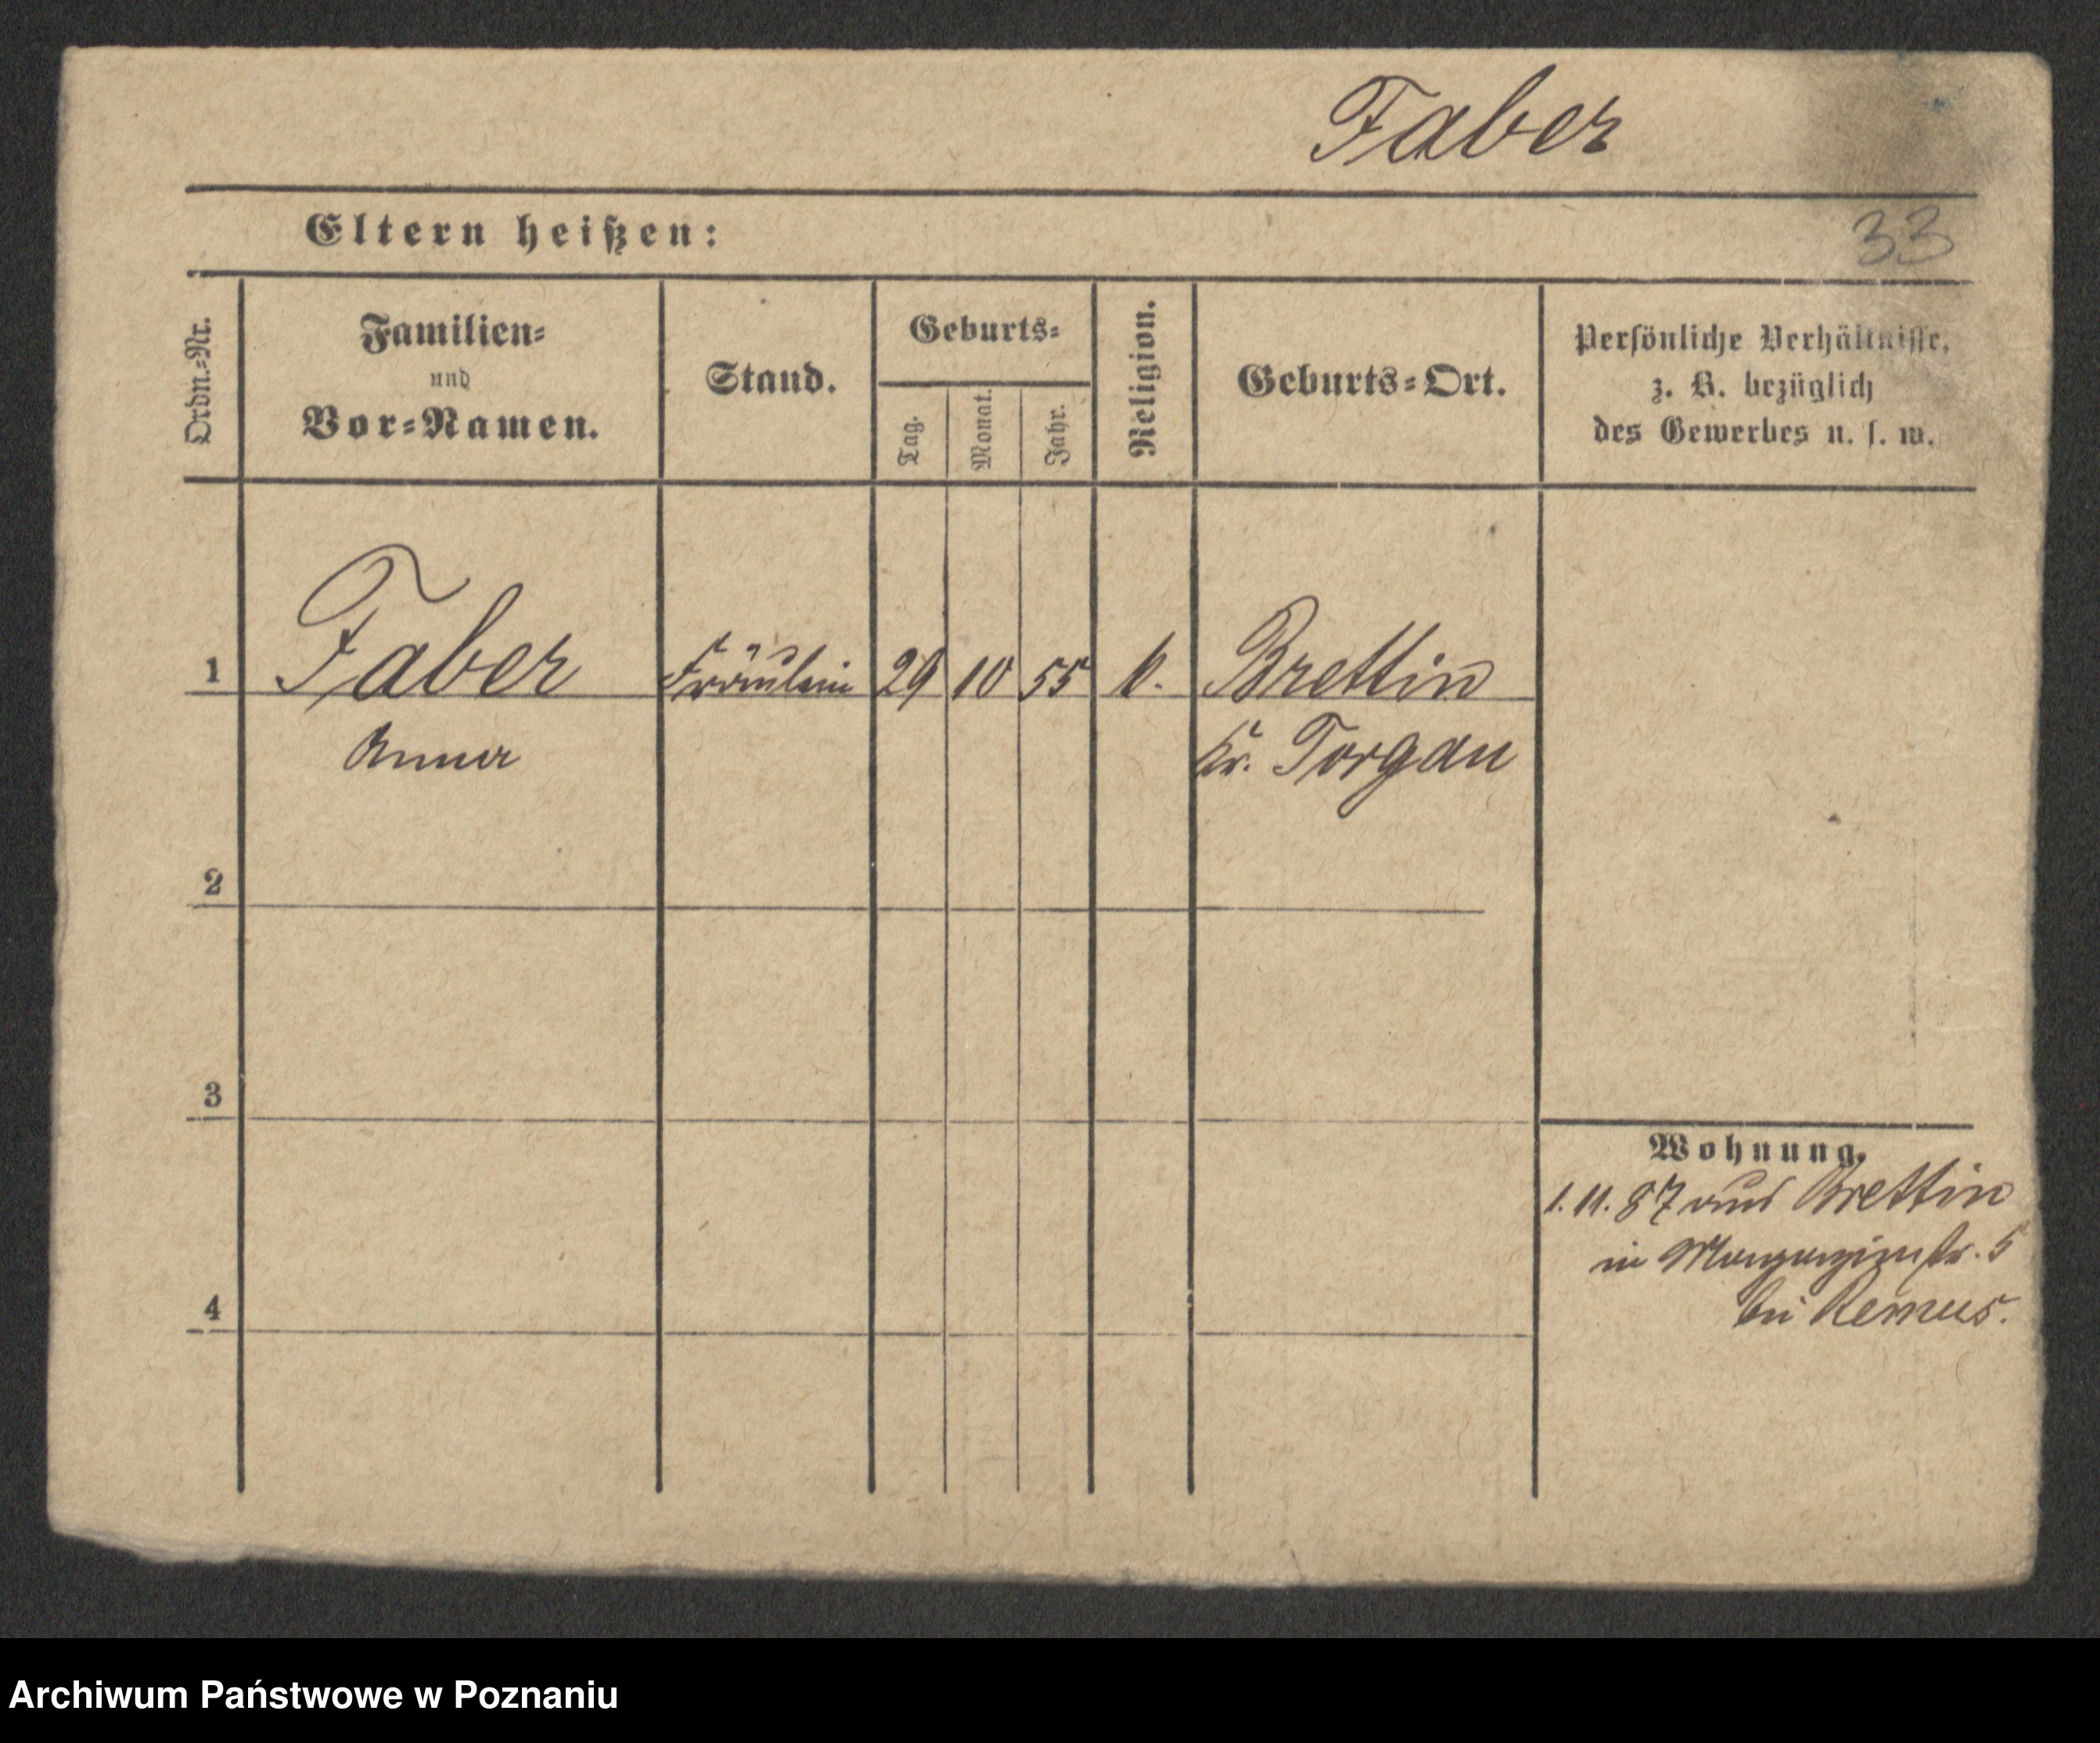 Faber
Eltern heißen:
33
Ordn.-Nr.
Familien-
und
Vor-Namen.
Stand.
Geburts-
Tag.
Monat.
Jahr.
Religion.
Geburts-Ort.
Persönliche Verhältnisse,
z. B. bezüglich
des Gewerbes u. s. w.
1 Faber Fräulein 29 10 55 k. Brettin
Anna Kr. Torgau
2
3
4
Wohnung.
1. 11. 87 aus Brettin
in Magazinstr. 5
bei Remus.
Archiwum Państwowe w Poznaniu